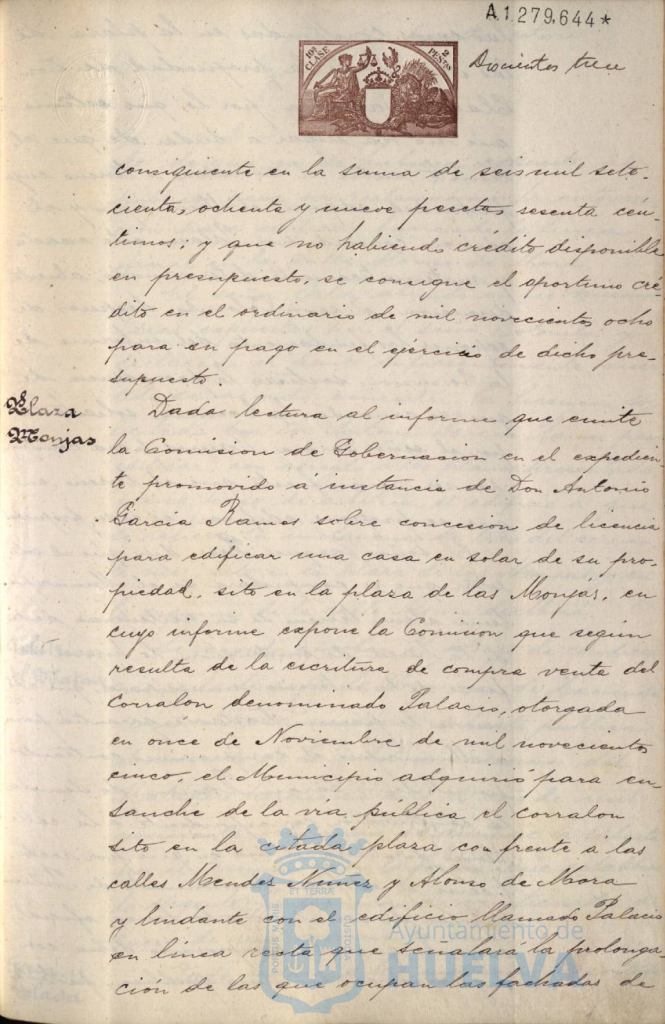 A.1.279,644*
10ª CLASE
2 PESETAS
Docientos trece
consiguiente en la suma de seis mil sete-
cientas, ochenta y nueve pesetas sesenta cén-
timos; y que no habiendo crédito disponible
en presupuesto, se consigne el oportuno cré-
dito en el ordinario de mil novecientos ocho
para su pago en el ejercicio de dicho pre-
supuesto.
Plaza
Monjas
Dada lectura al informe que emite
la Comision de Gobernacion en el expedien
te promovido á instancia de Don Antonio
Garcia Ramos sobre concesion de licencia
para edificar una casa en solar de su pro-
piedad, sito en la plaza de las Monjas, en
cuyo informe expone la Comision que según
resulta de la escritura de compra venta del
Corralon denominado Palacio, otorgada
en once de Noviembre de mil novecientos
cinco, el Municipio adquirió para en-
sanche de la via pública el corralon
sito en la citada plaza con frente á las
calles Mendez Nuñez y Alonso de Mora
y lindante con el edificio llamado Palacio
en línea recta que señalará la prolonga-
ción de las que ocupan las fachadas de
Ayuntamiento de
HUELVA